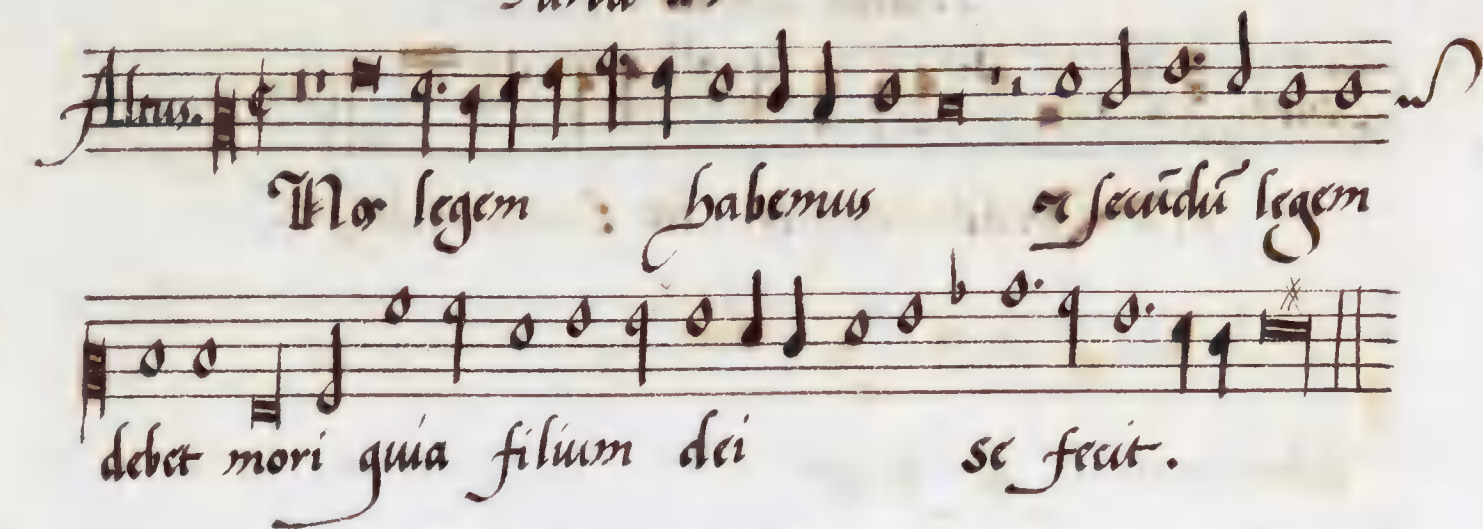 Altus.
Nos legem : habemus & secūdū legem
debet mori quia filium dei se fecit.